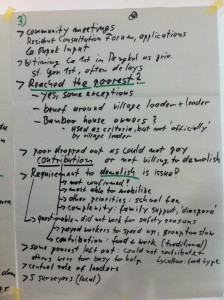 3)
> community meetings
Resident Consultation Forum, applications
Co. Input Input
> timing Co 1st in as prio.
St. Gov 1st, often delays
> Reached the poorest?
- yes, some exceptions
- benef around village leader + leader
- Bamboo house owners?
- used as criteria, but not 'officially'
by village leader
> poor dropped out as could not pay
contribution or not willing to demolish
> Requirement to demolish is issue?
not confirmed!
most able to mobilize
other priorities: school fee
complexity: family support, 'diaspora'
questionable - did not work for safety reasons
payed workers to speed up, group too slow
contribution: food & work (traditional)
> some poorest left out - could not contribute
others were too busy to help
culture: food type
> central role of leaders
> 35 surveyors (local)